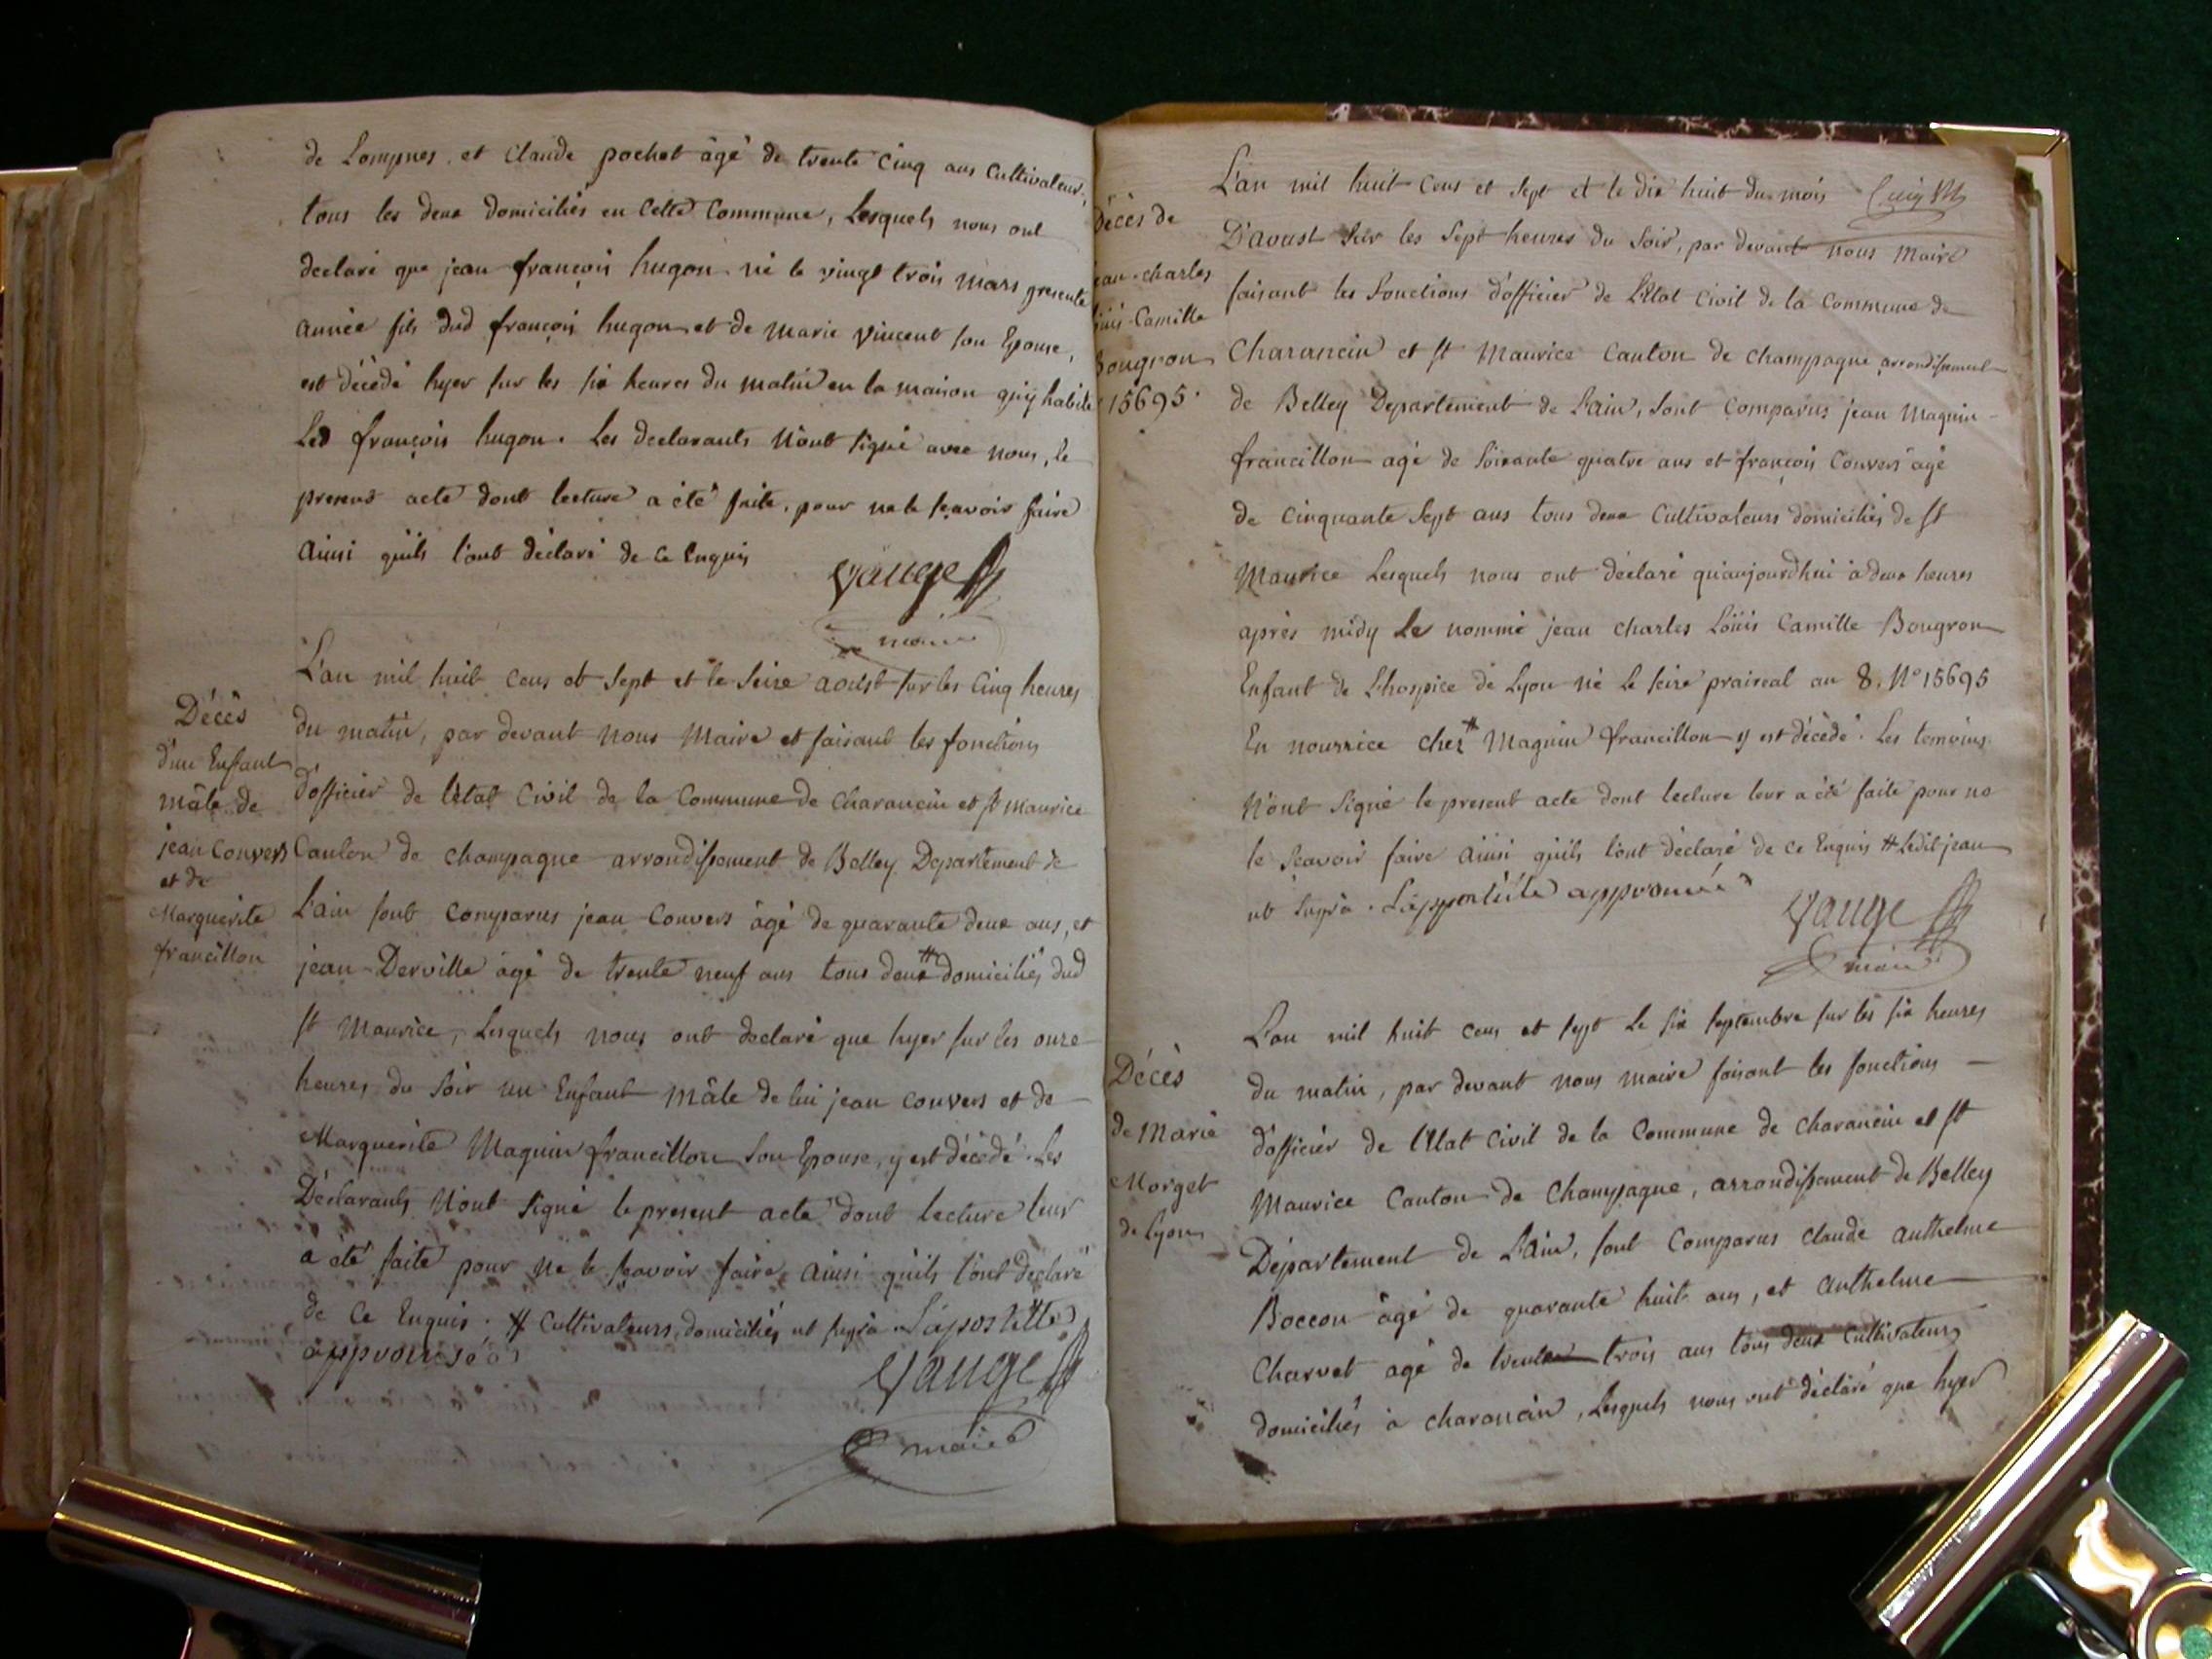 de Lompnes et Claude pochet âgé de trente Cinq ans Cultivateur,
tous les deux domiciliés en Cette Commune, Lesquels nous ont
declaré que jean françois hugon né le vingt trois mars presente
année fils dud françois hugon et de marie vincent son Epouse,
est décédé hyer sur les six heures du matin en la maison qu'y habite
Led françois hugon. Les declarants N'ont signé avec nous, le
present acte dont lecture a été faite, pour ne le sçavoir faire
Ainsi qu'ils l'ont déclaré de ce Enquis
vauge
maire
Décès
d'un Enfant
mâle de
jean Convers
et de
Marguerite
francillon
L'an mil huit cens et sept et le seize aoust sur les Cinq heures
du matin, par devant nous Maire et faisant les fonctions
d'officier de l'état Civil de la Commune de charancin et st maurice
Canton de champagne arrondissement de Belley Departement de
L'ain sont Comparus jean Convers âgé de quarante deux ans, et
jean Derville âgé de trente neuf ans tous deux # domiciliés dud
st Maurice, Lesquels nous ont declaré que hyer sur les onze
heures du soir un Enfant mâle de lui jean convers et de
Marguerite Maguin francillon son Epouse, y est décédé. Les
Déclarants N'ont signé le present acte dont lecture leur
a été faite pour ne le sçavoir faire, Ainsi qu'ils l'ont declaré
de ce Enquis. # Cultivateurs, domiciliés ut supra. L'apostille
approuvée
vauge
maire
L'an mil huit Cens et sept et le dix huit du mois
D'avust sur les sept heures du soir, par devant nous Maire
faisant les fonctions d'officier de L'Etat Civil de la Commune de
Charancin et st Maurice Canton de Champagne arrondissement
de Belley Departement de L'ain, sont Comparus jean Maguin
francillon agé de soixante quatre ans et françois Convers âgé
de cinquante sept ans tous deux Cultivateurs domiciliés de st
Maurice Lesquels nous ont déclaré qu'aujourdhui à deux heures
après midy Le nommé jean charles Loüis Camille Bougron
Enfant de L'hospice de Lyon né le seize praireal an 8. N° 15695
En nourrice chez # Maguin francillon y est décédé. Les temoins
N'ont signé le present acte dont lecture leur a été faite pour ne
le sçavoir faire Ainsi qu'ils l'ont déclaré de ce Enquis # Ledit jean
ut supra. L'appostille approuvée
vauge
maire
Décès de
ean charles
oüis Camille
Bougron
15695.
Décès
de Marie
Morget
de Lyon
L'an mil huit cens et sept le six septembre sur les six heures
du matin, par devant nous maire faisant les fonctions
d'officier de l'Etat Civil de la Commune de charancin et st
Maurice Canton de Champagne, arrondissement de Belley
Département de L'ain, sont Comparus claude anthelme
Boccon âgé de quarante huit ans, et anthelme
Charvet agé de trente trois ans tous deux Cultivateurs
domiciliés à charancin, Lesquels nous ont déclaré que hyer